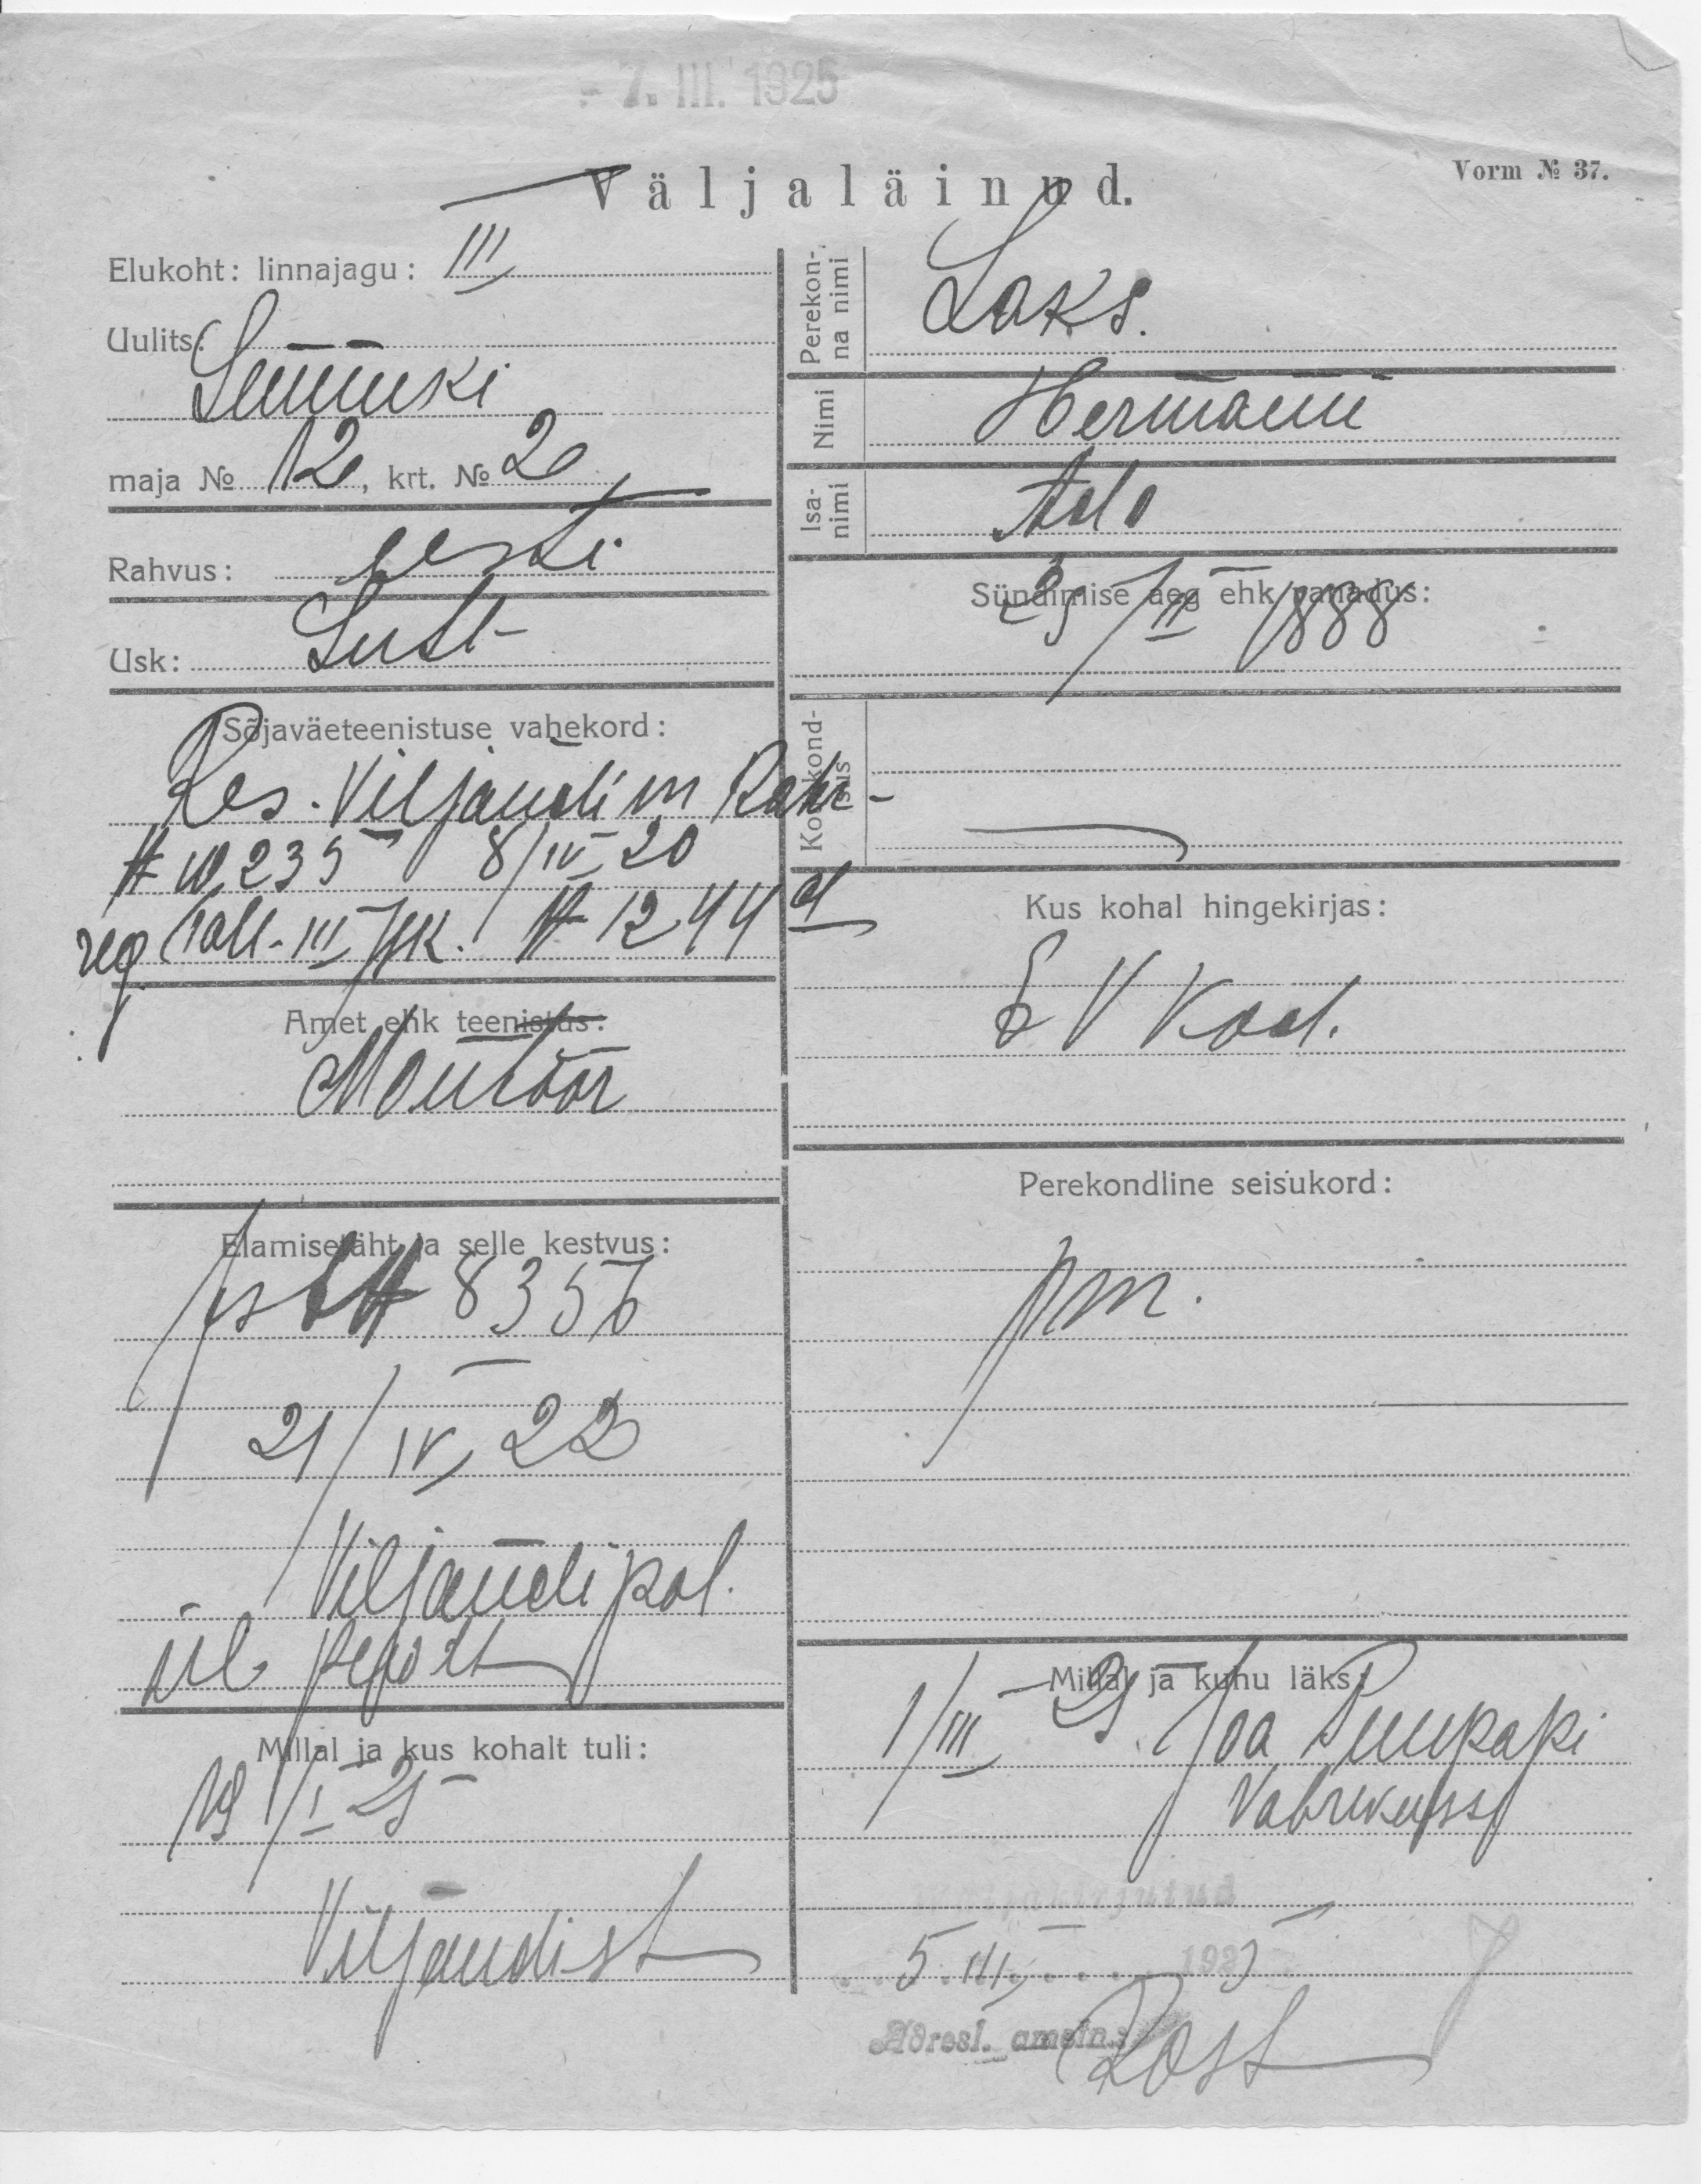 - 7. III. 1925
Väljaläinud.
Vorm № 37.
Elukoht: linnajagu: III
Uulits:
maja № 12, krt. № 2
Rahvus: eesti
Usk: Lutt
Sõjaväeteenistuse vahekord:
Res. Viljandi m Rahv-
№ 10,235 8/IV 20
reg. Tall. III Jsk. № 1244
Amet ehk teenistus:
Montöör
Elamisetäht ja selle kestvus:
№ 8356
21/IV 22
Viljandi pol.
ül.
Millal ja kus kohalt tuli:
19/I 25
Viljandist
Perekonna nimi
Laks.
Nimi
Hermann
Isanimi
Ado
Sündimise aeg ehk vanadus:
25/II 1888
Kodakondsus
Kus kohal hingekirjas:
E V Kod.
Perekondline seisukord:
pm.
Millal ja kuhu läks:
1/III 25. Joa Puupapi
Vabrikusse
Väljakirjutud
5. III. 1925
Adresl. ametn.: Rost